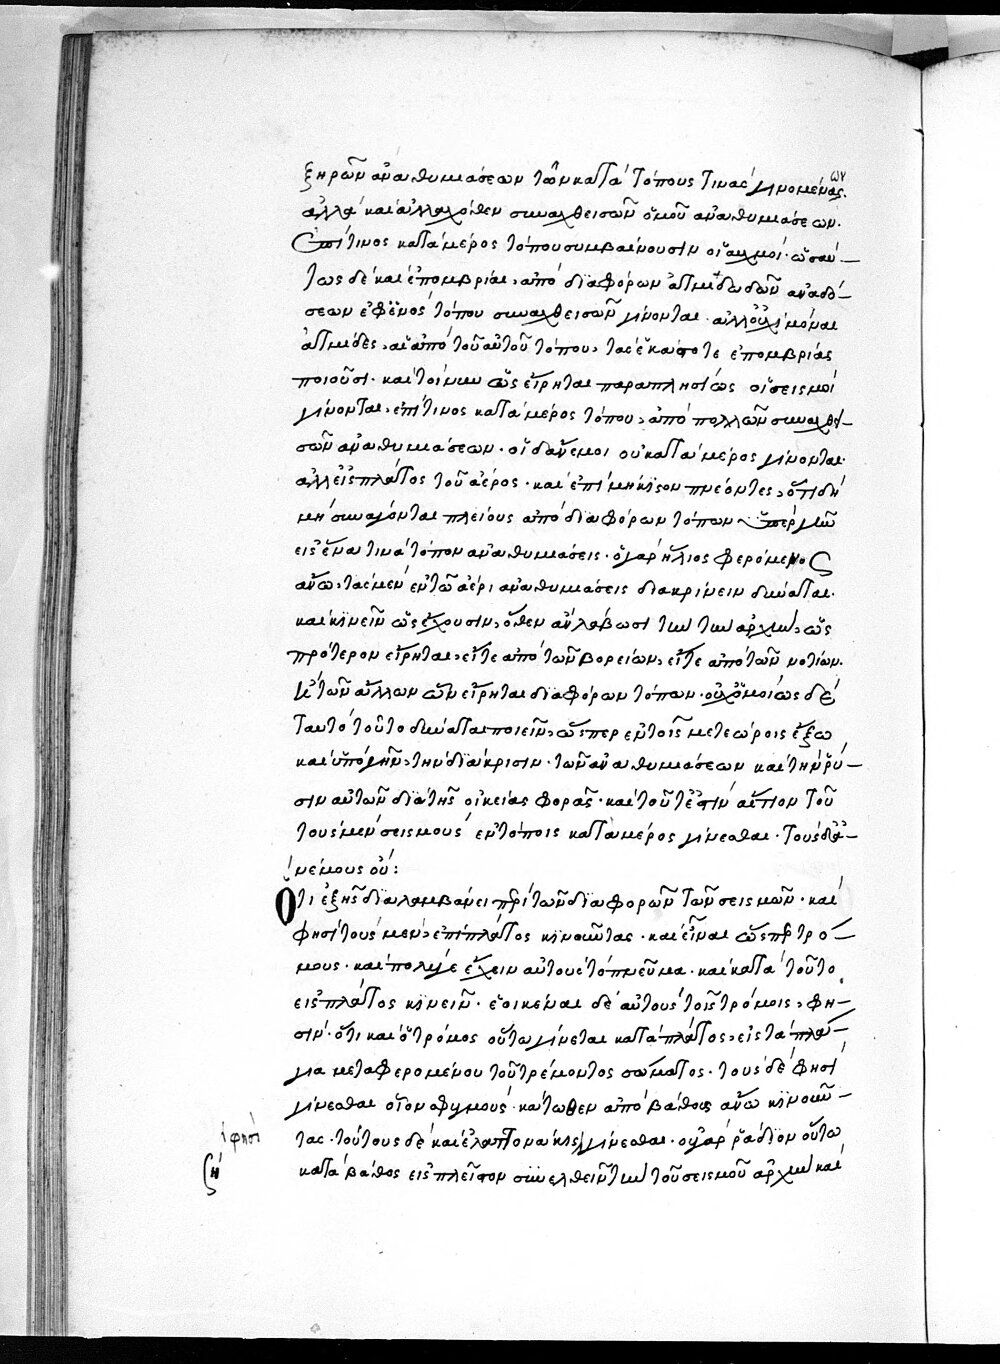 ξηρῶν ἀναθυμιάσεων τῶν κατὰ τόπους τινὰς γινομένας ων.
ἀλλὰ καὶ ἀλλαχόθεν συναχθεισῶν ὁμοῦ ἀναθυμιάσεων.
ἐπί τινος κατὰ μέρος τόπου συμβαίνουσιν οἱ αὐχμοί· ὡσαύ-
τως δὲ καὶ ἐπομβρίαι, ἀπὸ διαφόρων ἀτμιδωδῶν ἀναδό-
σεων ἐφ' ἑνὸς τόπου συναχθεισῶν γίνονται. ἀλλ' οὐχὶ μόναι
ἀτμίδες, αἱ ἀπὸ τοῦ αὐτοῦ τόπου, τὰς ἑκάστοτε ἐπομβρίας
ποιοῦσι. καὶ τοίνυν ὡς εἴρηται παραπλησίως οἱ σεισμοὶ
γίνονται, ἐπί τινος κατὰ μέρος τόπου, ἀπὸ πολλῶν συναχθει-
σῶν ἀναθυμιάσεων. οἱ δ' ἄνεμοι οὐ κατὰ μέρος γίνονται.
ἀλλ' εἰς πλάτος τοῦ ἀέρος. καὶ ἐπὶ μήκιστον πνέοντες, ὅτι δὴ
μὴ συνάγονται πλείους ἀπὸ διαφόρων τόπων ὑπὲρ γῆν
εἰς ἕνα τινὰ τόπον ἀναθυμιάσεις. ὁ γὰρ ἥλιος φερόμενος
ἄνω, τὰς μὲν ἐν τῷ ἀέρι ἀναθυμιάσεις διακρίνειν δύναται.
καὶ κινεῖν ὡς ἔχουσιν, ὅθεν ἂν λάβωσι τὴν τὴν ἀρχὴν, ὡς
πρότερον εἴρηται, εἴτε ἀπὸ τῶν βορείων, εἴτε ἀπὸ τῶν νοτίων.
κ τῶν ἄλλων ὧν εἴρηται διαφόρων τόπων. οὐχ ὁμοίως δὲ
ταυτὸ τοῦτο δύναται ποιεῖν, ὥσπερ ἐν τοῖς μετεώροις ἔξω
καὶ ὑπὸ γῆν, τὴν διάκρισιν. τῶν ἀναθυμιάσεων καὶ τὴν ῥύ-
σιν αὐτῶν διὰ τῆς οἰκείας φορᾶς. καὶ τοῦτ' ἐστὶν αἴτιον τοῦ
τοὺς μὲν σεισμοὺς ἐν τόποις κατὰ μέρος γίνεσθαι. τοὺς δ' ἀ-
νέμους οὔ:
Ὅτι ἑξῆς διαλαμβάνει περὶ τῶν διαφορῶν τῶν σεισμῶν. καὶ
φησὶ τοὺς μὲν, ἐπὶ πλάτος κινοῦντας. καὶ εἶναι ὥσπερ τρό-
μους. καὶ πολύ γε ἔχειν αὐτοὺς τὸ πνεῦμα. καὶ κατὰ τοῦτο
εἰς πλάτος κινεῖν. ἐοικέναι δὲ αὐτοὺς τοῖς τρόμοις, φη-
σίν. ὅτι καὶ ὁ τρόμος οὕτω γίνεται κατὰ πλάτος, εἰς τὰ πλά-
για μεταφερομένου τοῦ τρέμοντος σώματος. τοὺς δὲ φησὶ
γίνεσθαι οἷον σφυγμοὺς. κάτωθεν ἀπὸ βάθους ἄνω κινοῦν-
τας. τούτους δὲ καὶ ἐλαττονάκις γίνεσθαι. οὐ γὰρ ῥᾴδιον οὕτω
κατὰ βάθος εἰς πλεῖστον συνελθεῖν τὴν τοῦ σεισμοῦ ἀρχὴν καὶ